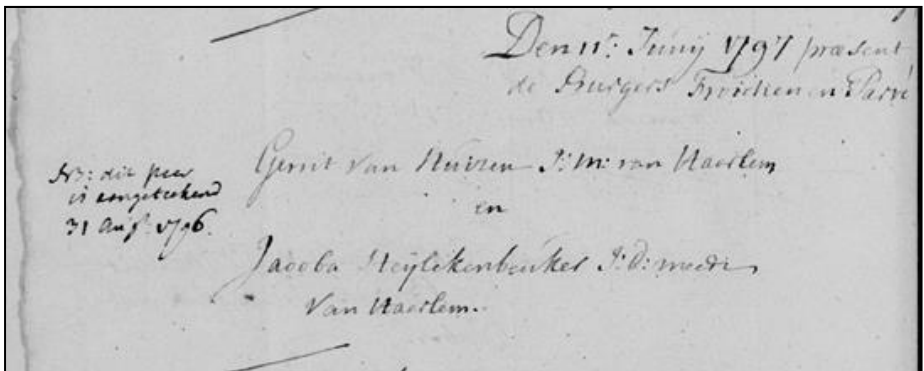 Den 11e: Junij 1797 præsent
de Burgers Froidien en Parvé
NB: dit paar
is aangetekend
31 Augs: 1796.
Gerrit van Huizen J: M: van Haerlem
en
Jacoba Heijlekenbeuker J: D: mede
van Haerlem.